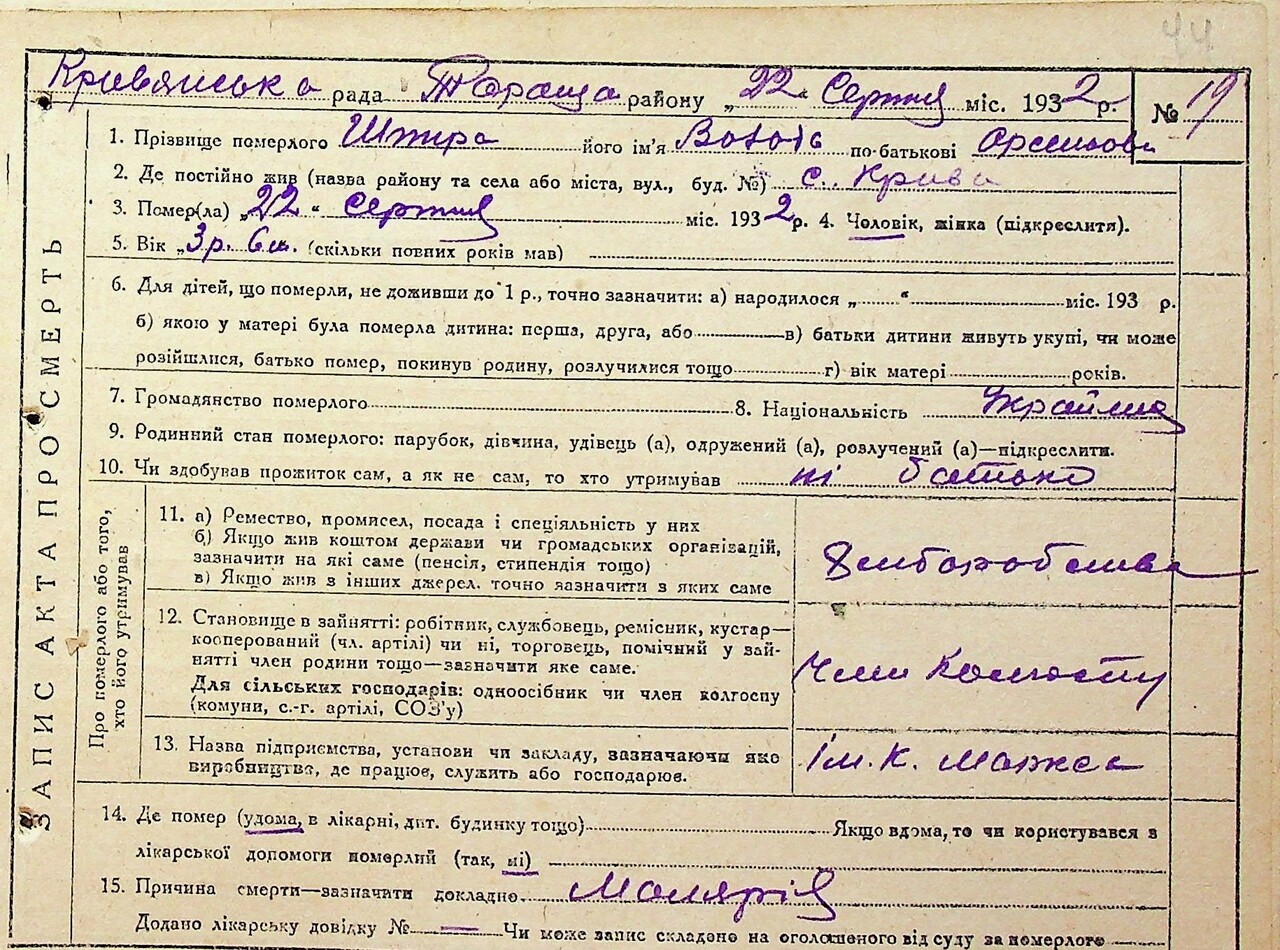 44
Кривянська рада Тараща району „22“ Серпня міс. 1932 р. № 19
1. Прізвище померлого Штира його ім'я по-батькові
2. Де постійно жив (назва району та села або міста, вул., буд. №) с. Крива
3. Помер(ла) „22“ Серпня міс. 1932 р. 4. Чоловік, жінка (підкреслити).
5. Вік „3 р. 6 м. (скільки повних років мав)
6. Для дітей, що померли, не доживши до 1 р., точно зазначити: а) народилося „ “ міс. 193 р.
б) якою у матері була померла дитина: перша, друга, або в) батьки дитини живуть укупі, чи може
розійшлися, батько помер, покинув родину, розлучилися тощо г) вік матері років.
7. Громадянство померлого 8. Національність
9. Родинний стан померлого: парубок, дівчина, удівець (а), одружений (а), розлучений (а)—підкреслити.
10. Чи здобував прожиток сам, а як не сам, то хто утримував ні батько
ЗАПИС АКТА ПРО СМЕРТЬ
Про померлого або того,
хто його утримував
11. а) Ремество, промисел, посада і спеціяльність у них
б) Якщо жив коштом держави чи громадських організацій,
зазначити на які саме (пенсія, стипендія тощо)
в) Якщо жив з інших джерел, точно зазначити з яких саме
12. Становище в зайнятті: робітник, службовець, ремісник, кустар—
кооперований (чл. артілі) чи ні, торговець, помічний у зай-
нятті член родини тощо—зазначити яке саме.
Для сільських господарів: одноосібник чи член колгоспу
(комуни, с.-г. артілі, СОЗ'у)
Член Колгоспу
13. Назва підприємства, установи чи закладу, зазначаючи яке
виробництво, де працює, служить або господарює.
Ім. К. Маркса
14. Де помер (удома, в лікарні, дит. будинку тощо) Якщо вдома, то чи користувався з
лікарської допомоги померлий (так, ні)
15. Причина смерти—зазначити докладно Малярія
Додано лікарську довідку № — Чи може запис складено на оголошеного від суду за померлого